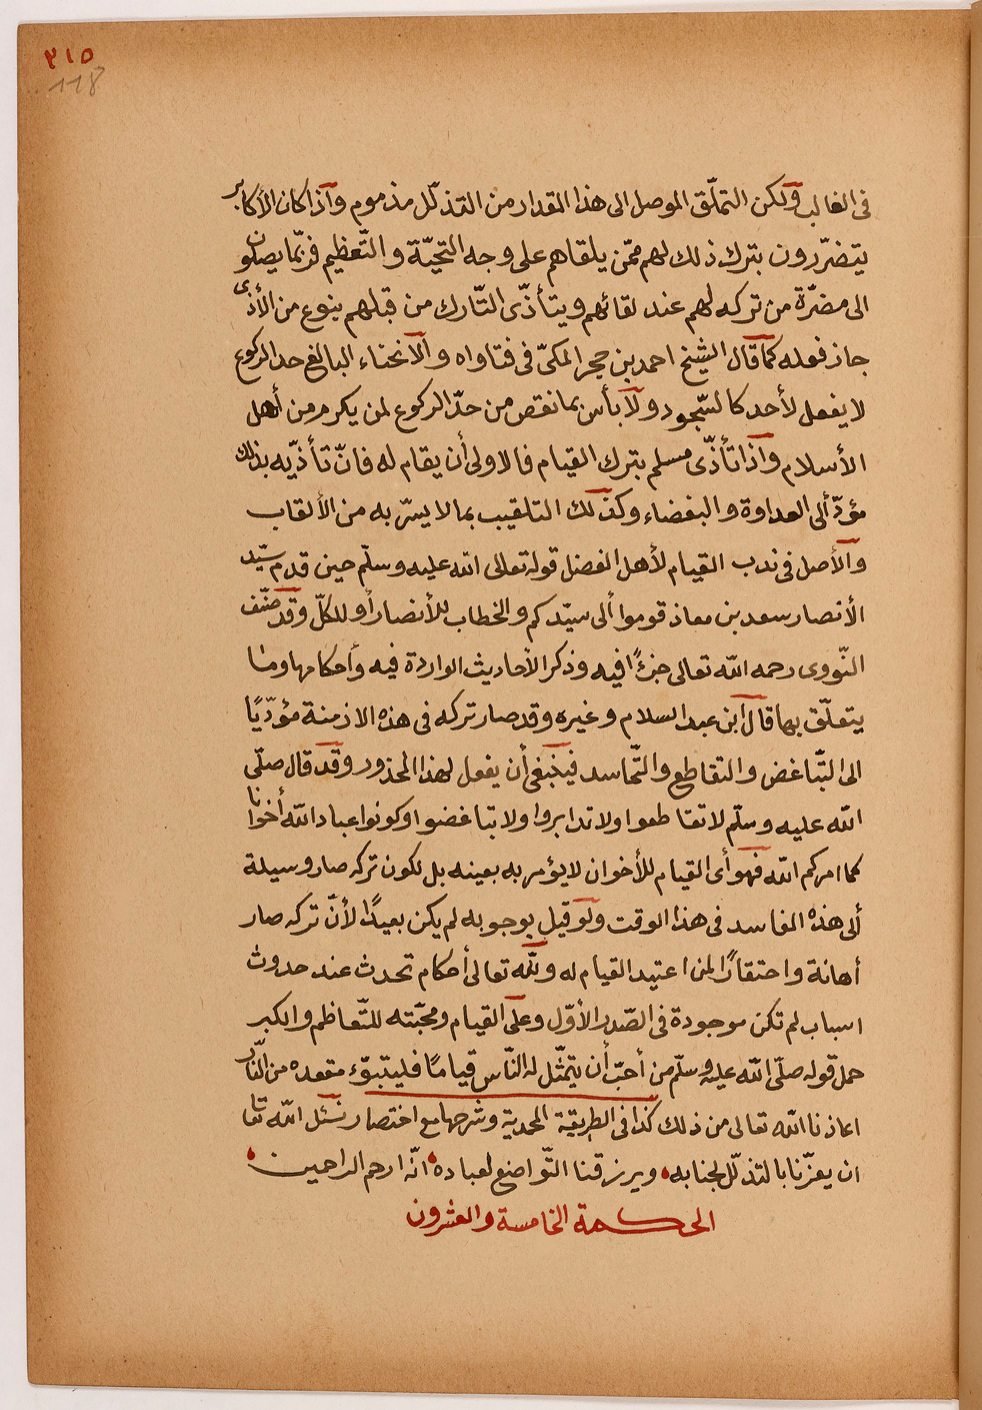 ٣١٥
118
فى الغالب ولكن التملّق الموصل الى هذا المقدار من التذلّل مذموم وأذا كان الأكابر
يتضرّرون بترك ذلك لهم ممّن يلقاهم على وجه التحيّة والتّعظيم فربّما يصلون
الى مضرّة من تركه لهم عند لقائهم ويتأذّى التّارك من قبلهم بنوع من الأذى
جاز فعله كما قال الشيخ احمد بن حجر المكىّ فى فتاواه والأنحناء البالغ حد الركوع
لا يفعل لأحد كالسّجود ولا بأس بما نقص من حدّ الركوع لمن يكرم من أهل
الأسلام وأذا تأذّى مسلم بترك القيام فالاولى أن يقام له فانّ تأذّيه بذلك
مؤدّ ألى العداوة والبغضاء وكذلك التلقيب بما لا يسرّ به من الألقاب
والأصل فى ندب القيام لأهل الفضل قوله تعالى الله عليه وسلّم حين قدم سيّد
الأنصار سعد بن معاذ قوموا ألى سيّدكم والخطاب للأنصار أو للكلّ وقد صنّف
النّووى رحمه الله تعالى جزءًا فيه وذكر الأحاديث الواردة فيه وأحكامها وما
يتعلّق بها قال ابن عبد السلام وغيره وقد صار تركه فى هذه الازمنة مؤدّيًا
الى التّباغض والتقاطع والتّحاسد فينبغى أن يفعل لهذا المحذور وقد قال صلّى
الله عليه وسلّم لا تقاطعوا ولا تدابروا ولا تباغضوا وكونوا عباد الله أخوانا
كما امركم الله فهو أى القيام للأخوان لا يؤمر به بعينه بل لكون تركه صار وسيلة
ألى هذه المفاسد فى هذا الوقت ولو قيل بوجوبه لم يكن بعيدًا لأنّ تركه صار
أهانة واحتقارًا لمن اعتيد القيام له ولله تعالى أحكام تحدث عند حدوث
اسباب لم تكن موجودة فى الصّدر الأوّل وعلى القيام ومحبّته للتّعاظم والكبر
حمل قوله صلّى الله عليه وسلّم من أحبّ أن يتمثّل له النّاس قيامًا فليتبوّء مقعده من النّار
اعاذنا الله تعالى من ذلك كذا فى الطريقة المحمدية وشرحها مع اختصار نسئل الله تعا
ان يعزّنا بالتذلّل لجنابه ويرزقنا التّواضع لعباده انّه ارحم الراحمين
الحكمة الخامسة والعشرون